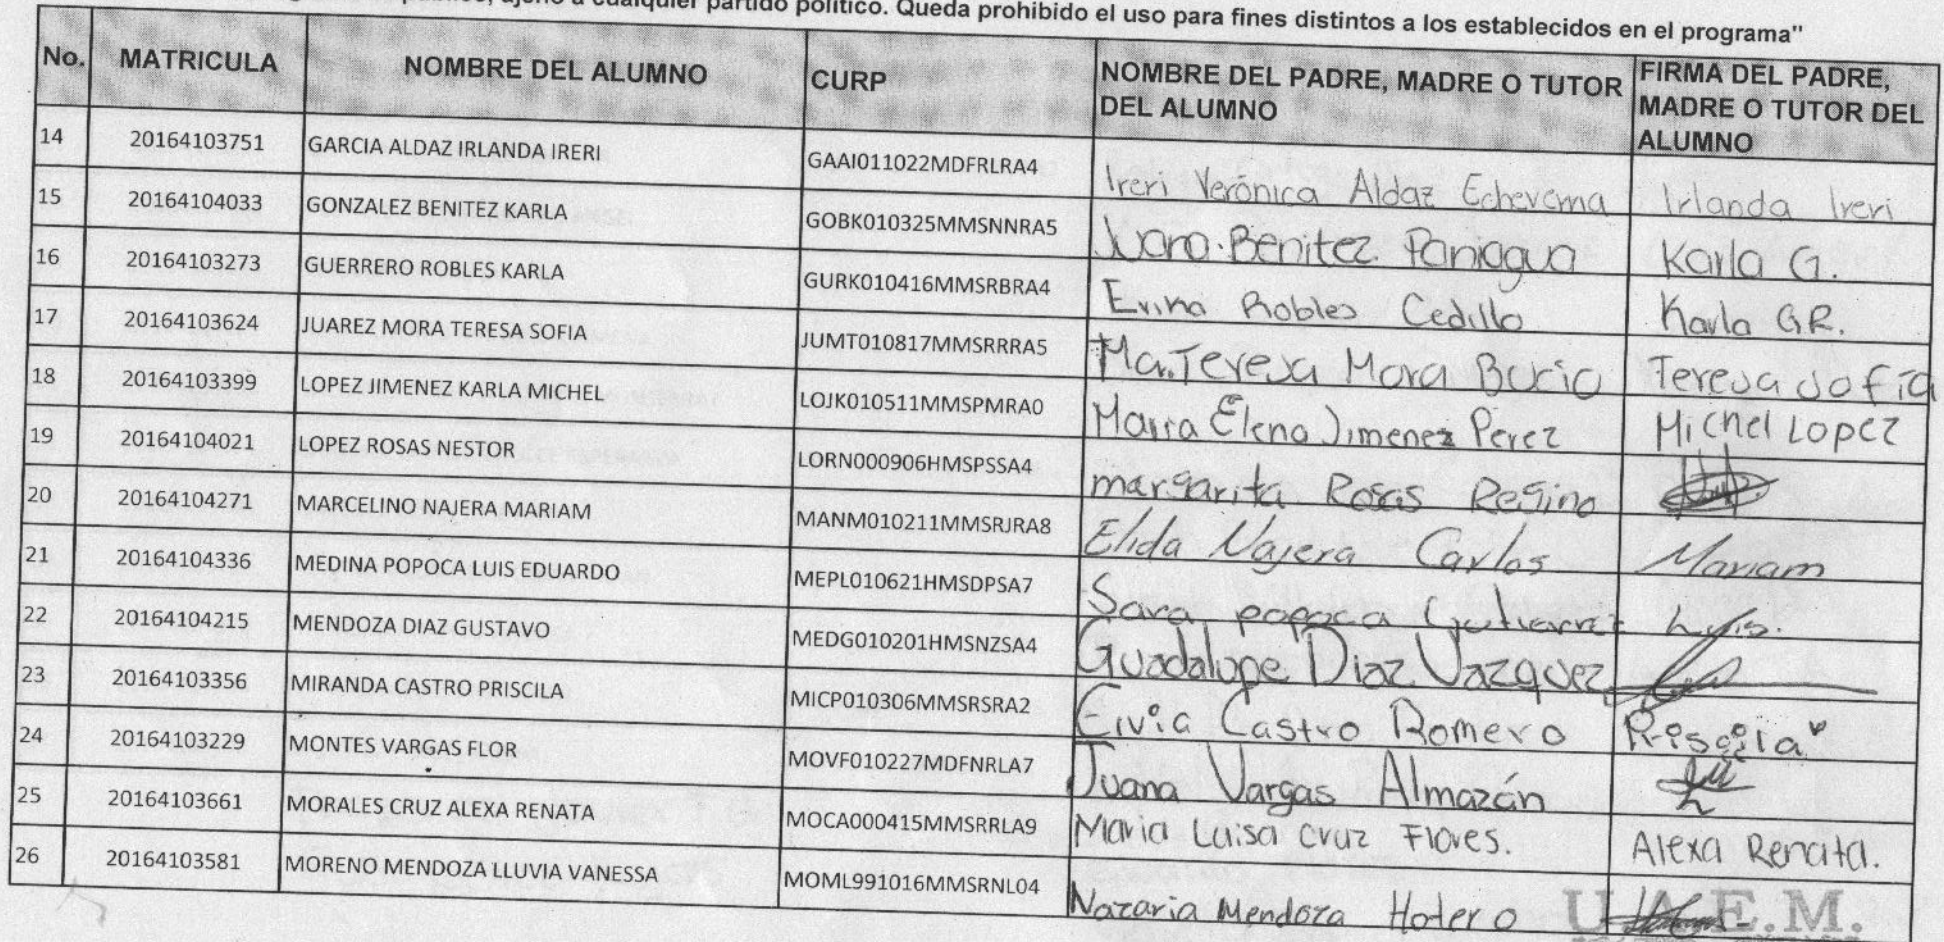 a cualquier partido político. Queda prohibido el uso para fines distintos a los establecidos en el programa"
No. MATRICULA NOMBRE DEL ALUMNO CURP NOMBRE DEL PADRE, MADRE O TUTOR DEL ALUMNO FIRMA DEL PADRE, MADRE O TUTOR DEL ALUMNO
14 20164103751 GARCIA ALDAZ IRLANDA IRERI GAAI011022MDFRLRA4 Ireri Verónica Aldaz Echeverria Irlanda Ireri
15 20164104033 GONZALEZ BENITEZ KARLA GOBK010325MMSNNRA5 Juana Benitez Paniagua Karla G.
16 20164103273 GUERRERO ROBLES KARLA GURK010416MMSRBRA4 Robles Cedillo Karla GR.
17 20164103624 JUAREZ MORA TERESA SOFIA JUMT010817MMSRRRA5 Ma. Teresa Mora Bucio Teresa Sofía
18 20164103399 LOPEZ JIMENEZ KARLA MICHEL LOJK010511MMSPMRA0 Maria Elena Jimenez Perez Michel Lopez
19 20164104021 LOPEZ ROSAS NESTOR LORN000906HMSPSSA4 margarita Rosas Regino
20 20164104271 MARCELINO NAJERA MARIAM MANM010211MMSRJRA8 Elida Najera Carlos Mariam
21 20164104336 MEDINA POPOCA LUIS EDUARDO MEPL010621HMSDPSA7 Sara popoca Gutierrez Luis.
22 20164104215 MENDOZA DIAZ GUSTAVO MEDG010201HMSNZSA4 Guadalupe Diaz Vazquez
23 20164103356 MIRANDA CASTRO PRISCILA MICP010306MMSRSRA2 Eivia Castro Romero Priscila
24 20164103229 MONTES VARGAS FLOR MOVF010227MDFNRLA7 Juana Vargas Almazán
25 20164103661 MORALES CRUZ ALEXA RENATA MOCA000415MMSRRLA9 Maria Luisa Cruz Flores. Alexa Renata.
26 20164103581 MORENO MENDOZA LLUVIA VANESSA MOML991016MMSRNL04 Nazaria Mendoza Hotero
U.A.E.M.